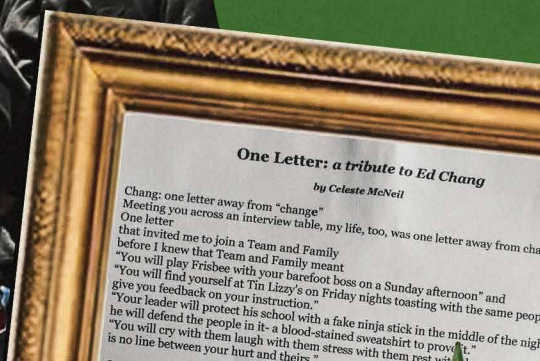 One Letter: a tribute to Ed Chang
by Celeste McNeil
Chang: one letter away from “change”
Meeting you across an interview table, my life, too, was one letter away from cha
One letter
that invited me to join a Team and Family
before I knew that Team and Family meant
“You will play Frisbee with your barefoot boss on a Sunday afternoon” and
“You will find yourself at Tin Lizzy's on Friday nights toasting with the same peop
give you feedback on your instruction.”
“Your leader will protect his school with a fake ninja stick in the middle of the nigh
he will defend the people in it- a blood-stained sweatshirt to prove it.”
“You will cry with them laugh with them stress with them rest
is no line between your hurt and theirs.”